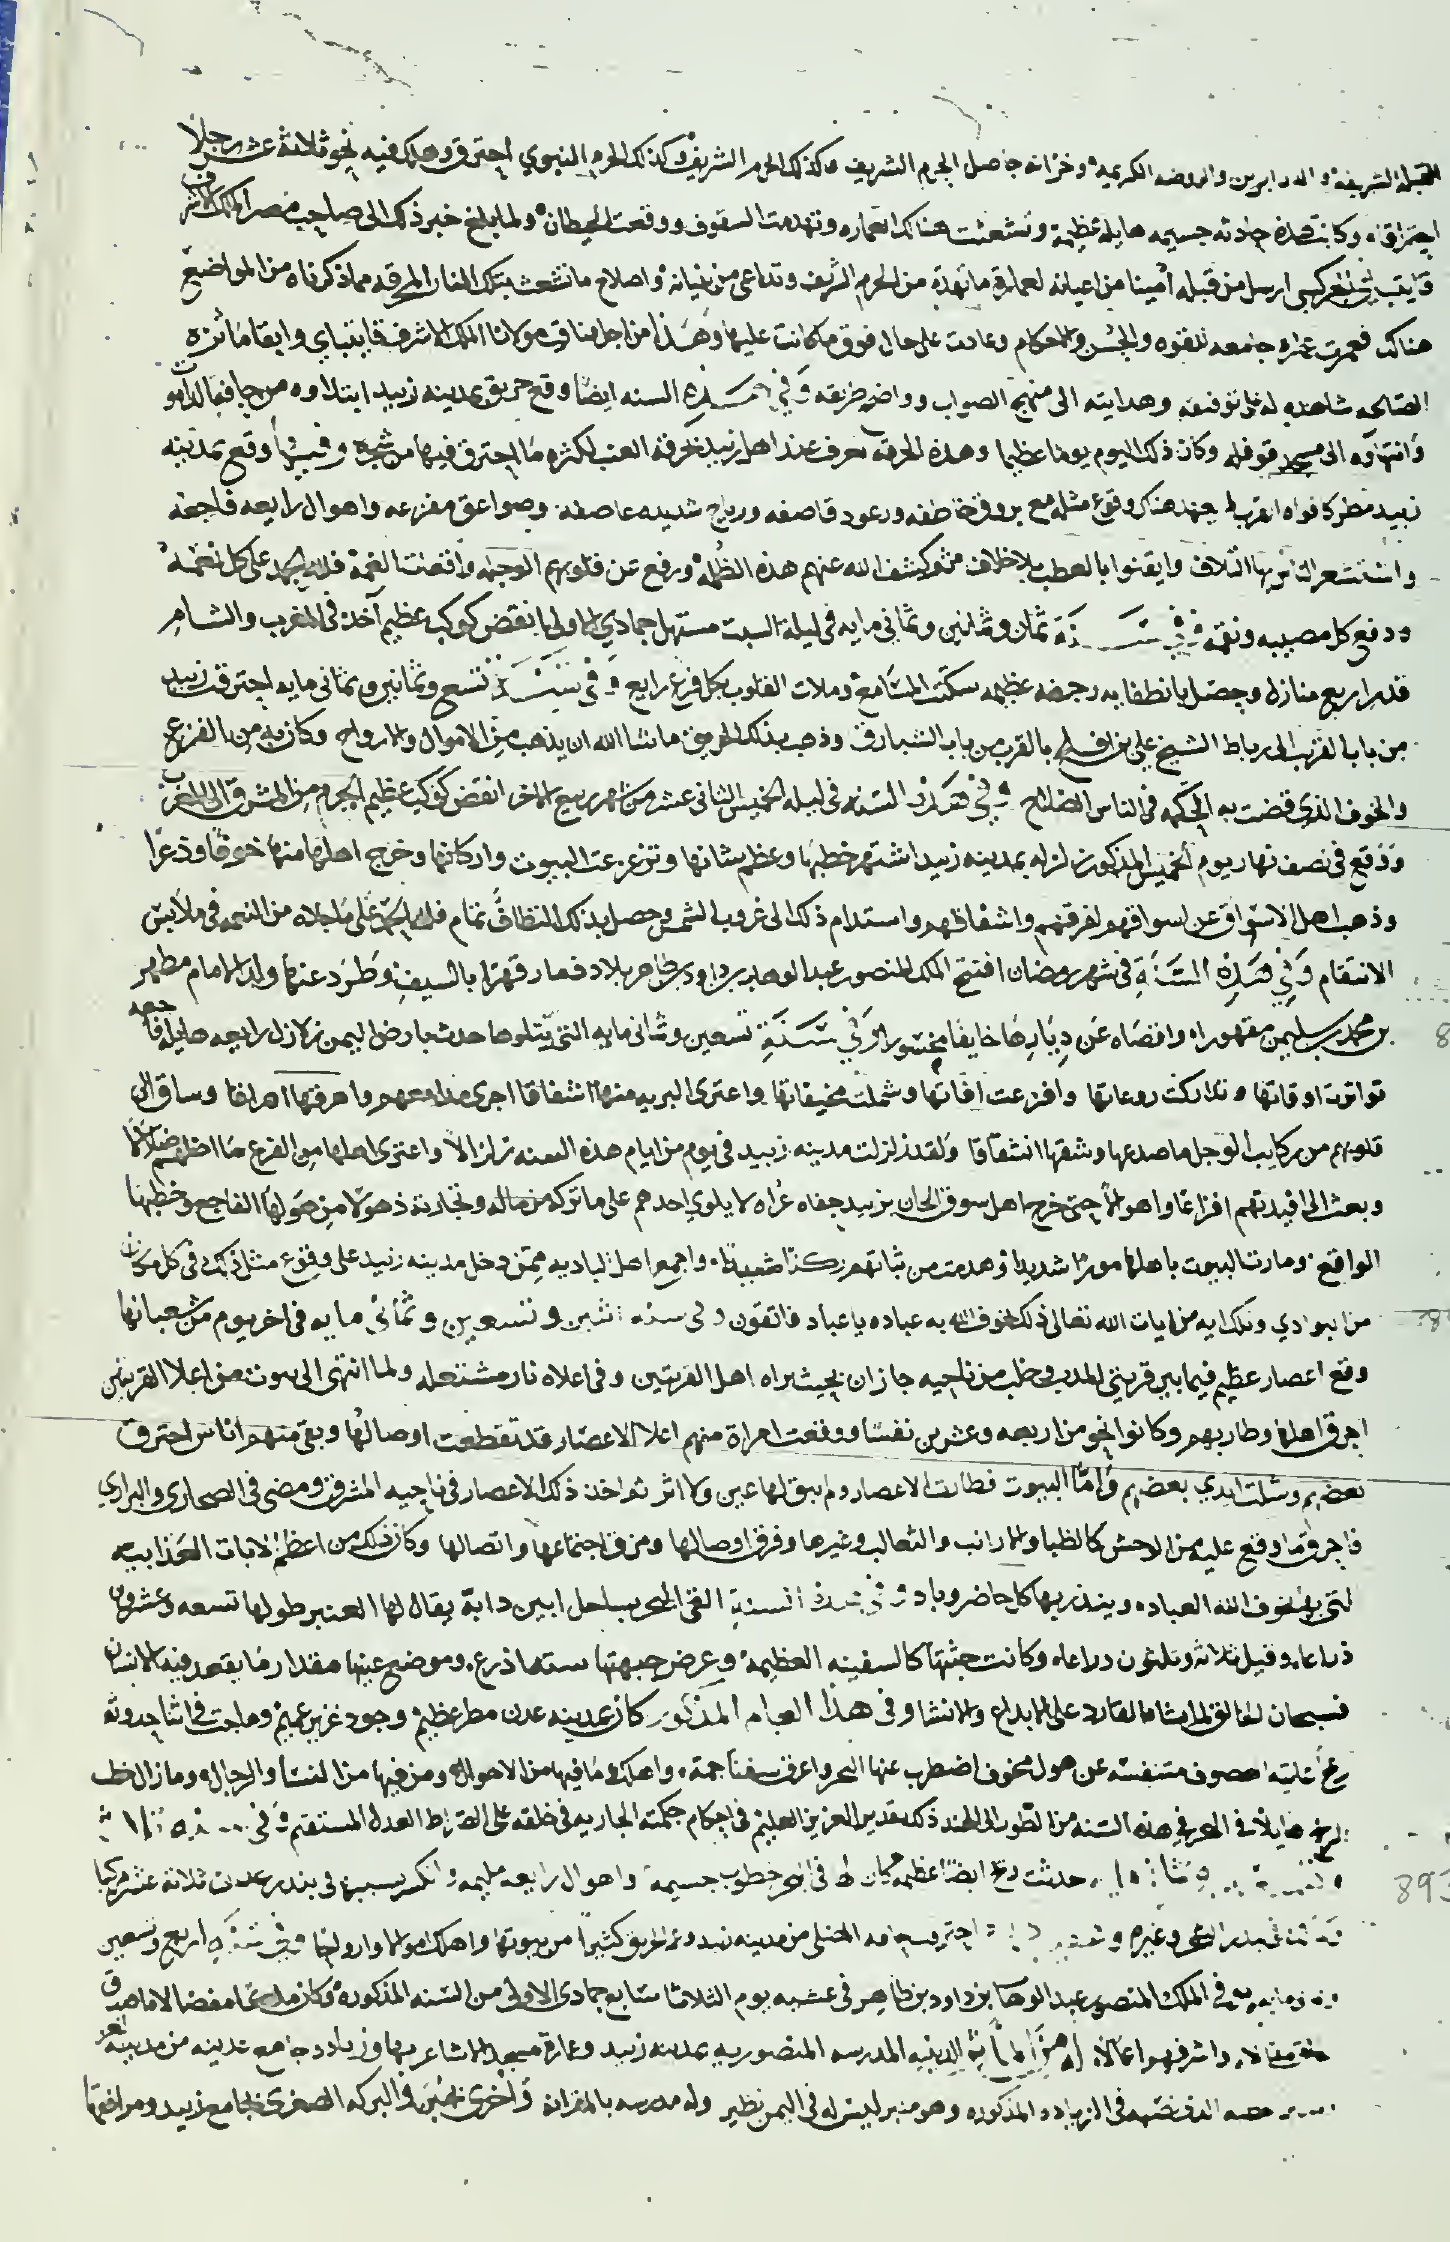 القبلة الشريفة والدرابزين والروضه الكريمة وخزانة حاصل الحرم الشريف وكذلك الحرم الشريف وكذلك الحرم النبوي احترق وهلك فيه نحو ثلاثة عشر رجلا
احتراقا وكانت هذه حادثه جسيمه هايله عظيمة وتشعثت هنالك العماره وتهدمت السقوف ووقعت الحيطان ولما بلغ خبر ذلك الى صاحب مصر الملك الاشرف
قايتباي الجركسي ارسل من قبله أمينا من اعيانه لعمارة ما تهدم من الحرم الشريف وتداعى من بنيانه واصلاح ما تشعث بتلك النار المحرقه مما ذكرناه من المواضع
هناك فعمرت عماره جامعه للقوه والحسن والاحكام وعادت على حال فوق ما كانت عليه وهذا من اجل مناقب مولانا الملك الاشرف قايتباي وابقا مآثره
الصالحه شاهدة له توفيقه وهدايته الى منهج الصواب وواضح طريقه وفي هذه السنه ايضا وقع حريق بمدينه زبيد ابتداوه من حافة
وانتهآوه الى مسجد قوفله وكان ذلك اليوم يوما عظيما وهذه الحرقة تعرف عند اهل زبيد بحرقة العنب لكثره ما احترق فيها من شجره وفيها وقع بمدينه
زبيد مطر كافواه القرب لم يعهد هناك وقوع مثله مع بروق خاطفه ورعود قاصفه ورياح شديده عاصفه وصواعق مفزعه واهوال رايعه فاجعه
واستشعر الناس بها التلاف وايقنوا بالعطب بلا خلاف ثم كشف الله عنهم هذه الظلمة ورفع عن قلوبهم الوجله واقشعت الغمة فلله الحمد على كل نعمه
ودفع كل مصيبه ونقمه وفي سنة ثمان وثمانين وثماني مايه في ليلة السبت مستهل جمادي الاولى انقض كوكب عظيم آخذ في المغرب والشام
قدر اربع منازل وحصل بانطفايه رجفه عظيمه سكتت المسامع وملات القلوب بكل فزع رايع وفي سنة تسع وثمانين وثماني مايه احترقت زبيد
من باب القرتب الى رباط الشيخ علي بن افلح بالقرب من باب الشبارق وذهب بذلك الحريق ما شا الله ان يذهب من الاموال والارواح وكان به من الفزع
والخوف الذي قضت به الحكمه في الناس وفي هذه السنه في ليله الخميس الثاني عشر من شهر ربيع الاخر انقض كوكبا عظيم الجرم من المشرق الى المغرب
ووقع في نصف نهار يوم الخميس المذكور زلزله بمدينه زبيد اشتهر خطبها وعظم شانها وتزعزعت البيوت واركانها وخرج اهلها منها خوفا وذعرا
وذهب اهل الاسواق عن اسواقهم لفرقهم واشفاقهم واستدام ذلك الى غروب الشمس وحصل بذلك فلله الحمد على ما جلاه من النعمه في ملابس
الانتقام وفي هذه السنة في شهر رمضان افتتح الملك المنصور عبد الوهاب بن داود بن طاهر بلاد قهرا بالسيف وطرد عنها ولد الامام مطهر
بن محمد بن سليمن مقهورا واقصاه عن ديارها خايفا وفي سنة تسعين وثماني مايه التي يتلوها حدث بارض اليمن زلازل رايعه هايله فاجعه
تواترت اوقاتها وتداركت روعاتها وافزعت افاتها وشملت مخيفاتها واعترى البريه منها اشفاقا اجرى مدامعهم واهرقها اهراقا وساق الى
قلوبهم من ركايب الوجل ما صدعها وشقها انشقاقا ولقد زلزلت مدينه زبيد في يوم من ايام هذه السنه زلزالا واعترى اهلها من الفزع ما
وبعث الى افيدتهم افزاعا واهوالا حتى خرج اهل سوق الخان بزبيد حفاه عراه لا يلوي احدهم على ما تركه من ماله وتجارته ذهولا من هولها الفاجع وخطبها
الواقع ومارت البيوت باهلها مورا شديدا وهدمت من واجمع اهل الباديه ممن دخل مدينه زبيد على وقوع مثل ذلك في كل مكان
من البوادي وتلك ايه من ايات الله تعالى ذلك يخوف الله به عباده يا عباد فاتقون وفي سنه اثنين وتسعين وثماني مايه في اخر يوم من شعبانها
وقع اعصار عظيم فيما بين قريتي من ناحيه جازان بحيث يراه اهل القريتين وفي اعلاه نار مشتعله ولما انتهى الى بيوت من اعلا القريتين
احرق اهلها وطار بهم وكانوا نحو من اربعه وعشرين نفسا ووقعت امراة منهم اعلا الاعصار قد تقطعت اوصالها وبقي منهم اناس احترق
بعضهم وشلت ايدي بعضهم واما البيوت فطارت بالاعصار ولم يبق لها عين ولا اثر ثم اخذ ذلك الاعصار في ناحيه المشرق ومضى في الصحارى والبراري
فاحرق ما وقع عليه من الوحش كالظبا والارانب والثعالب وغيرها وفرق اوصالها ومزق اجتماعها واتصالها وكان ذلك من اعظم الايات العذابيه
التي يخوف الله العباد وينذر بها كل حاضر وباد وفي هذه السنة القى البحر بساحل ابين دابة يقال لها العنبر طولها تسعه وعشرون
ذراعا وقيل ثلاثه وثلثون ذراعا وكانت جثتها كالسفينه العظيمة وعرض جبهتها سته اذرع وموضع عينها مقدار ما يقعد فيه الانسان
فسبحان الخالق لما يشا القادر على الابداع والانشا وفي هذا العام المذكور كان بمدينه عدن مطر عظيم وجود غزير عميم وهاجت في اثنا حدوثه
ريح عاتيه عصوف متنفسة عن هول مخوف اضطرب عنها البحر واغرق سفنا جمة واهلك ما فيها من الاموال ومن فيها من النسا والرجال وما زال
الريح هايلا في البحر في هذه السنه من الطور الى الهند ذلك تقدير العزيز العليم في احكام حكمته الجاريه في خلقه على الصراط العدل المستقيم وفي
حدثت ريح ايضا عظيمه كان لها في البحر خطوب جسيمة واهوال رايعه مليمه وانكسر بسببها في بندر عدن ثلاثة عشر مركبا
بندر الشحر وغيره احترقت من مدينه زبيد وعم الحريق كثيرا من بيوتها واهلك اموالا وارواحا وفي سنة اربع وتسعين
وثمانمايه توفي الملك المنصور عبد الوهاب بن داود بن طاهر في عشيه يوم الثلاثا سابع جمادى الاولى من السنه المذكوره وكان ملكا
واشرفهم اعمالا له من المآثر الدينيه المدرسه المنصوريه بمدينه زبيد وعمارة مسجد الاشاعر بها وزيادة جامع مدينه من مدينة تعز
في الزياده المذكوره وهو منبر ليس له في اليمن نظير وله مدرسه بالمقرانة واخرى بجبن والبركه الصغرى بجامع زبيد ومرافقها
893